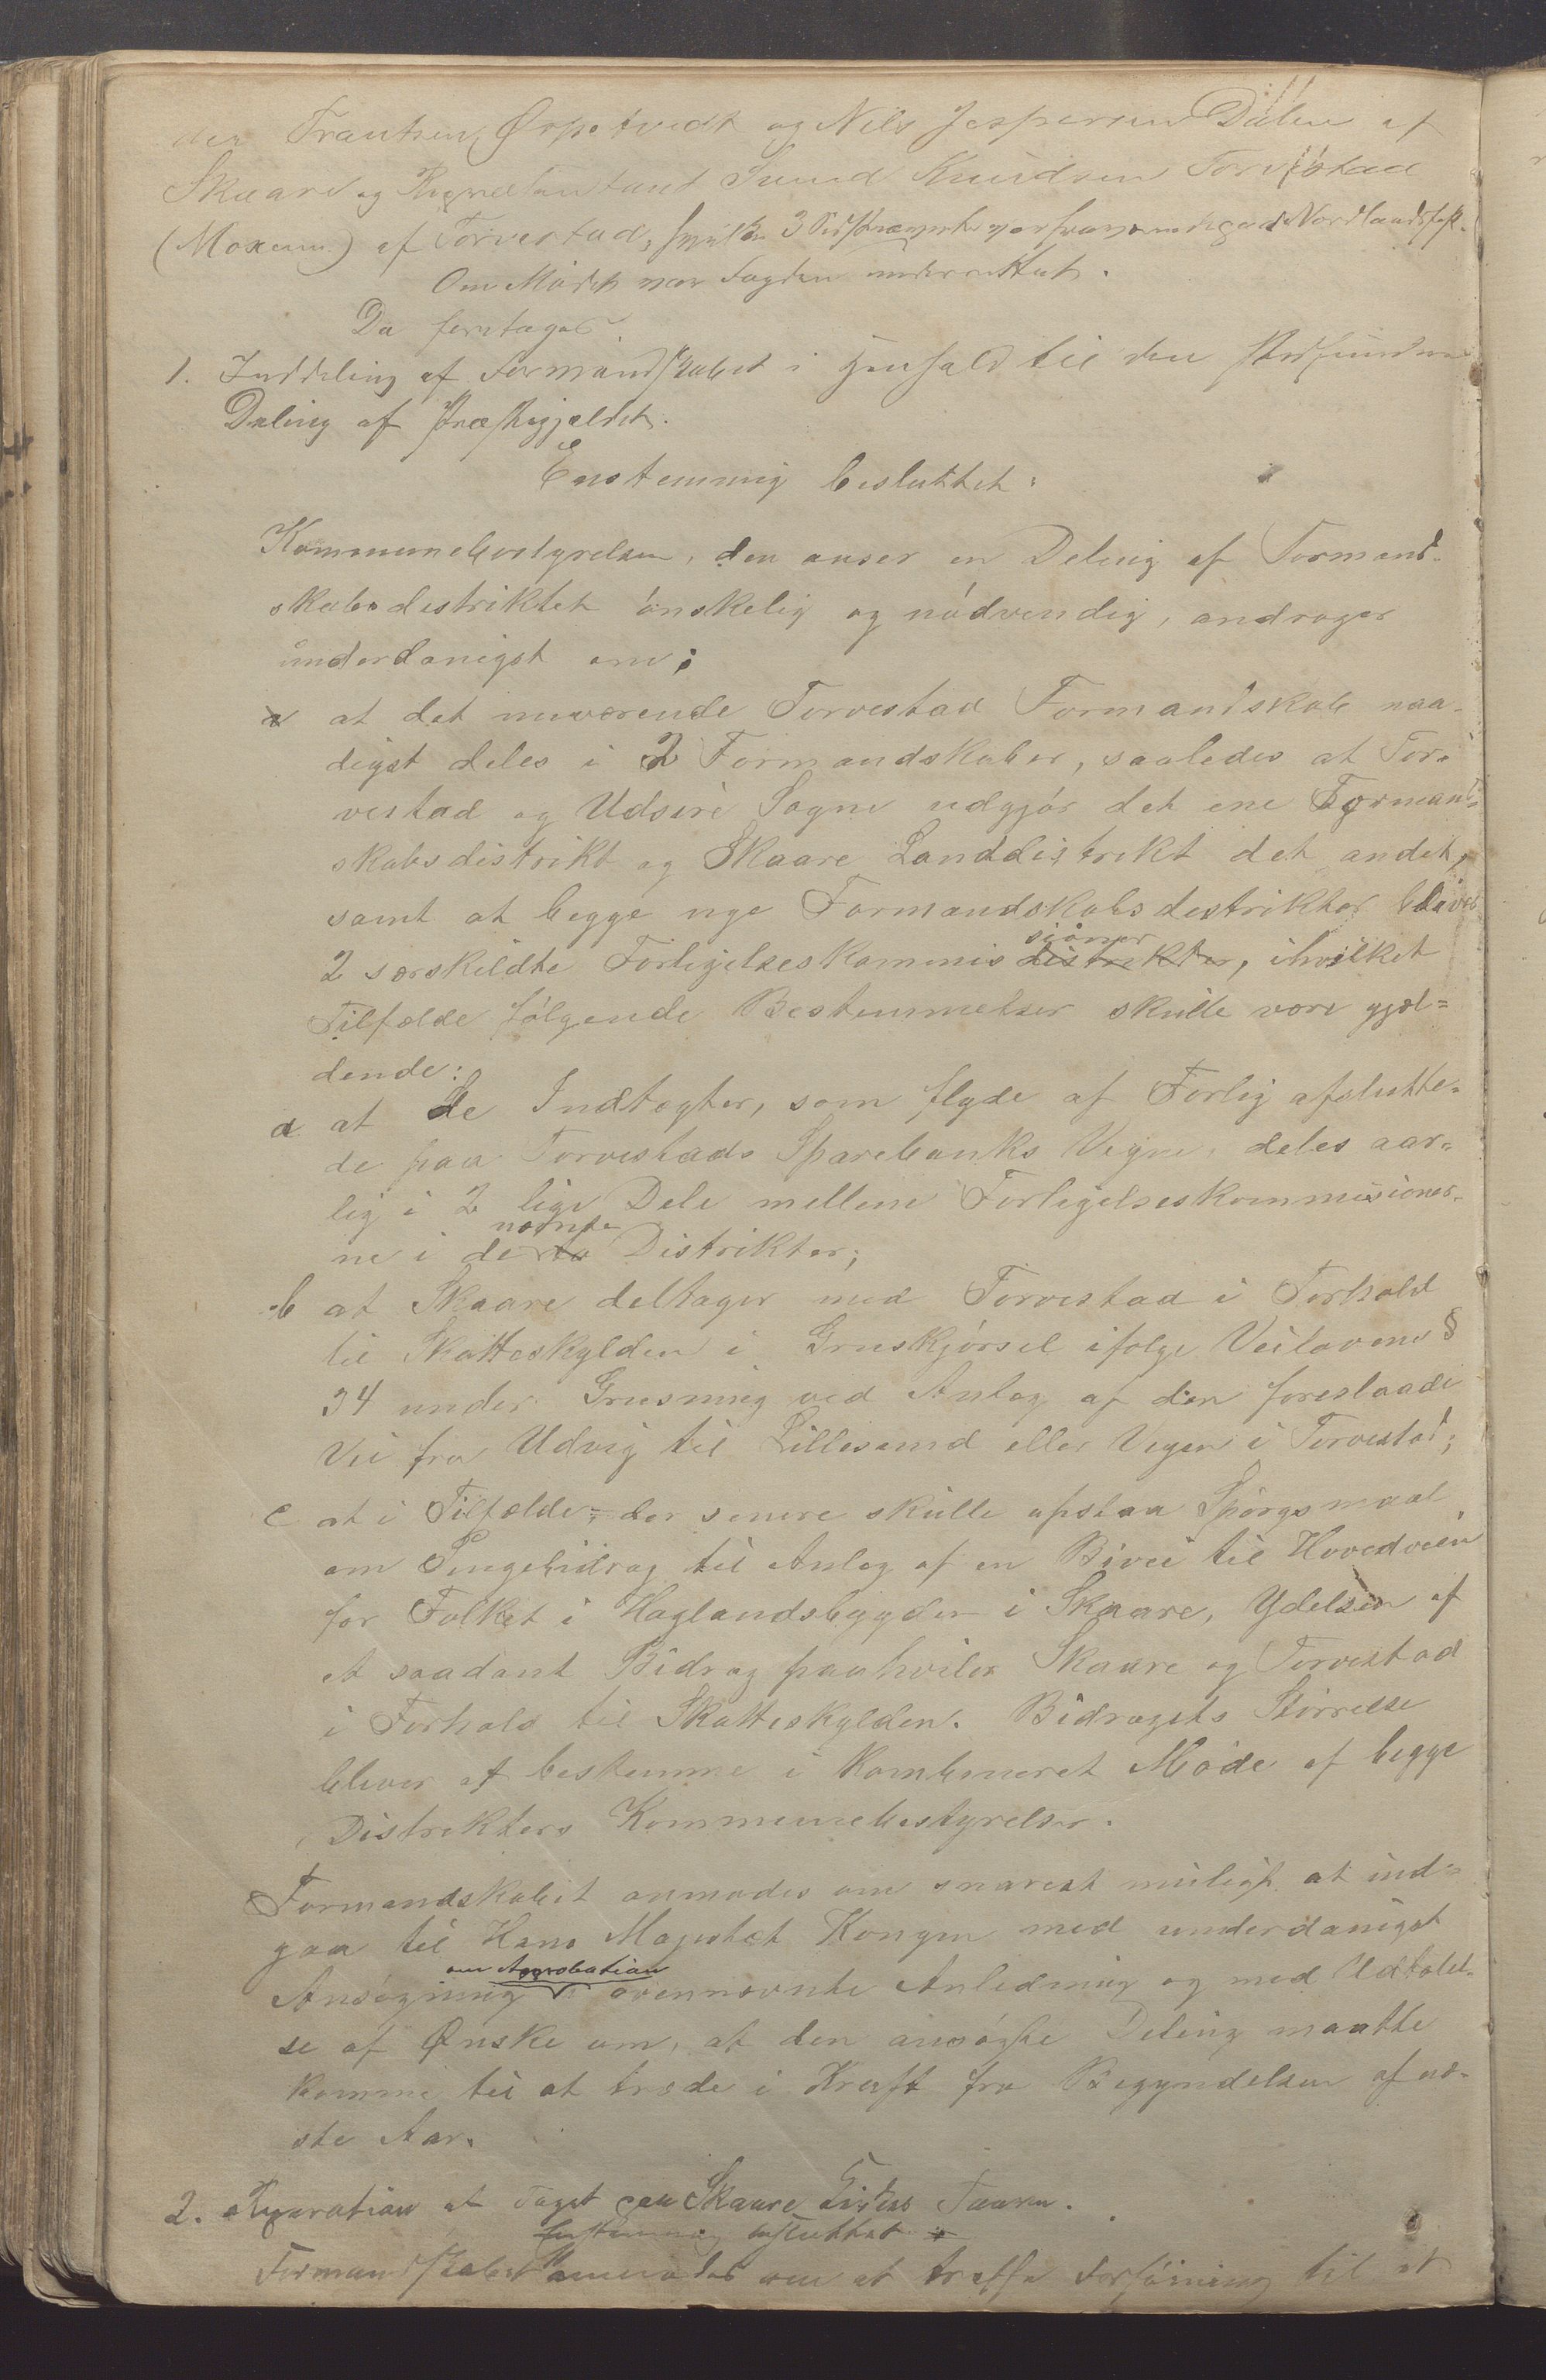 der Frantsen Ørpetvedt og Nils Jespersen Dalen af
Skaare og Repræsentant Svend Knudsen Torvestad
(Moxeim) af Torvestad, hvilke 3 Sidstnævnte var fraværende
Om Mödet var Fogden underrettet.
Da foretoges
1. Inddeling af Formandskabet i Henhold til den stedfundne
Deling af Præstegjeldet.
Enstemmig besluttet:
Kommunebestyrelsen, den anser en Deling af Formand-
skabsdistriktet önskelig og nödvendig, andrager
underdanigst om:
at det nuværende Torvestad Formandskab naa-
digst deles i 2 Formandskaber, saaledes at Tor-
vestad og Udsire Sogne udgjör det ene Formand-
skabsdistrikt og Skaare Landdistrikt det andet,
samt at begge nye Formandskabsdistrikter bliver
2 særskildte Forligelseskommissiöner distrikter, ihvilket
Tilfælde fölgende Bestemmelser skulle være gjæl-
dende:
a at de Indtægter, som flyde af Forlig afslutte-
de paa Torvestads Sparebanks Vegne, deles aar-
lig i 2 lige Dele mellem Forligelseskommisioner-
ne i de nævnte Distrikter;
b at Skaare deltager med Torvestad i Forhold
til Skatteskylden i Gruskjörsel ifölge Veilovens §
34 under Grusning ved Anlæg af den foreslaaede
Vei fra Udvig til Lillesund eller Vegen i Torvestad;
c at i Tilfælde, der senere skulle opstaa Spörgsmaal
om Pengebidrag til Anlæg af en Bivei til Hovedveien
for Folket i Haglandsbygden i Skaare, Ydelsen af
et saadant Bidrag paahviler Skaare og Torvestad
i Forhold til Skatteskylden. Bidragets Störrelse
bliver at bestemme i kombineret Möde af begge
Distrikters Kommunebestyrelser.
Formandskabet anmodes om snarest muligt at ind-
gaa til Hans Majestæt Kongen med underdanigst
Ansögning om Approbation i ovennævnte Anledning og med Udtalel-
se af Ønske om, at den ansögte Deling maatte
komme til at træde i Kraft fra Begyndelsen af næ-
ste Aar.
2. Reparation af Taget paa Skaare Kirkes Taarn.
Enstemmig besluttet:
Formandskabet anmodes om at træffe Forföining til at